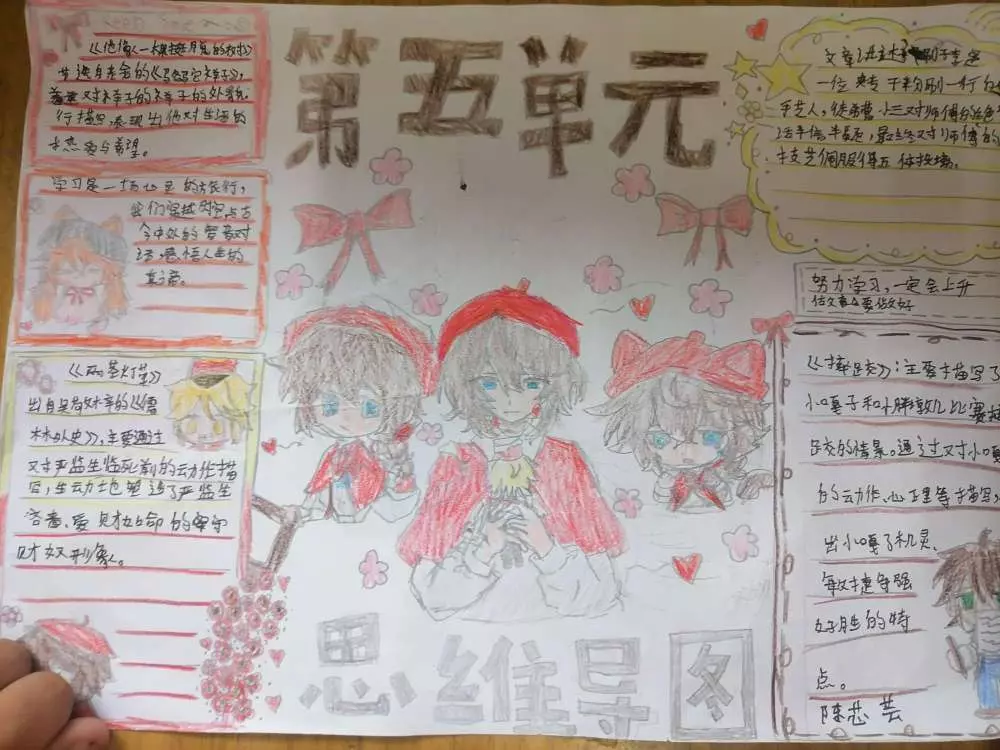 第五单元
《他像一棵挺脱的树》
节选自老舍的《骆驼祥子》,
对祥子的祥子的外貌
行描写,表现出他对生活的
热爱与希望。
学习是一场心灵的旅行,
我们穿越时空点古
今中外的智者对
话,感悟人生的
真谛。
《两茎灯草》
出自吴敬梓的《儒
林外史》,主要通过
对严监生临死前的动作描
写,生动地塑造了严监生
吝啬、爱财如命的守
财奴形象。
文章讲述刷子李是
一位专干粉刷一行的
手艺人,徒弟曹小三对师傅
话半信半疑,最终对师傅的
技艺佩服得五体投地。
努力学习,一定会上升
做文章会要做好
《摔跤》:主要描写了
小嘎子和小胖墩儿比赛摔
跤的情景。通过对小嘎
的动作、心理等描写,
出小嘎子机灵、
敏捷争强
好胜的特
点。
陈芯芸
思维导图